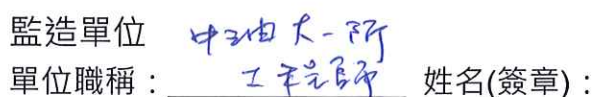 監造單位 中油大一所
單位職稱：工程師 姓名(簽章)：